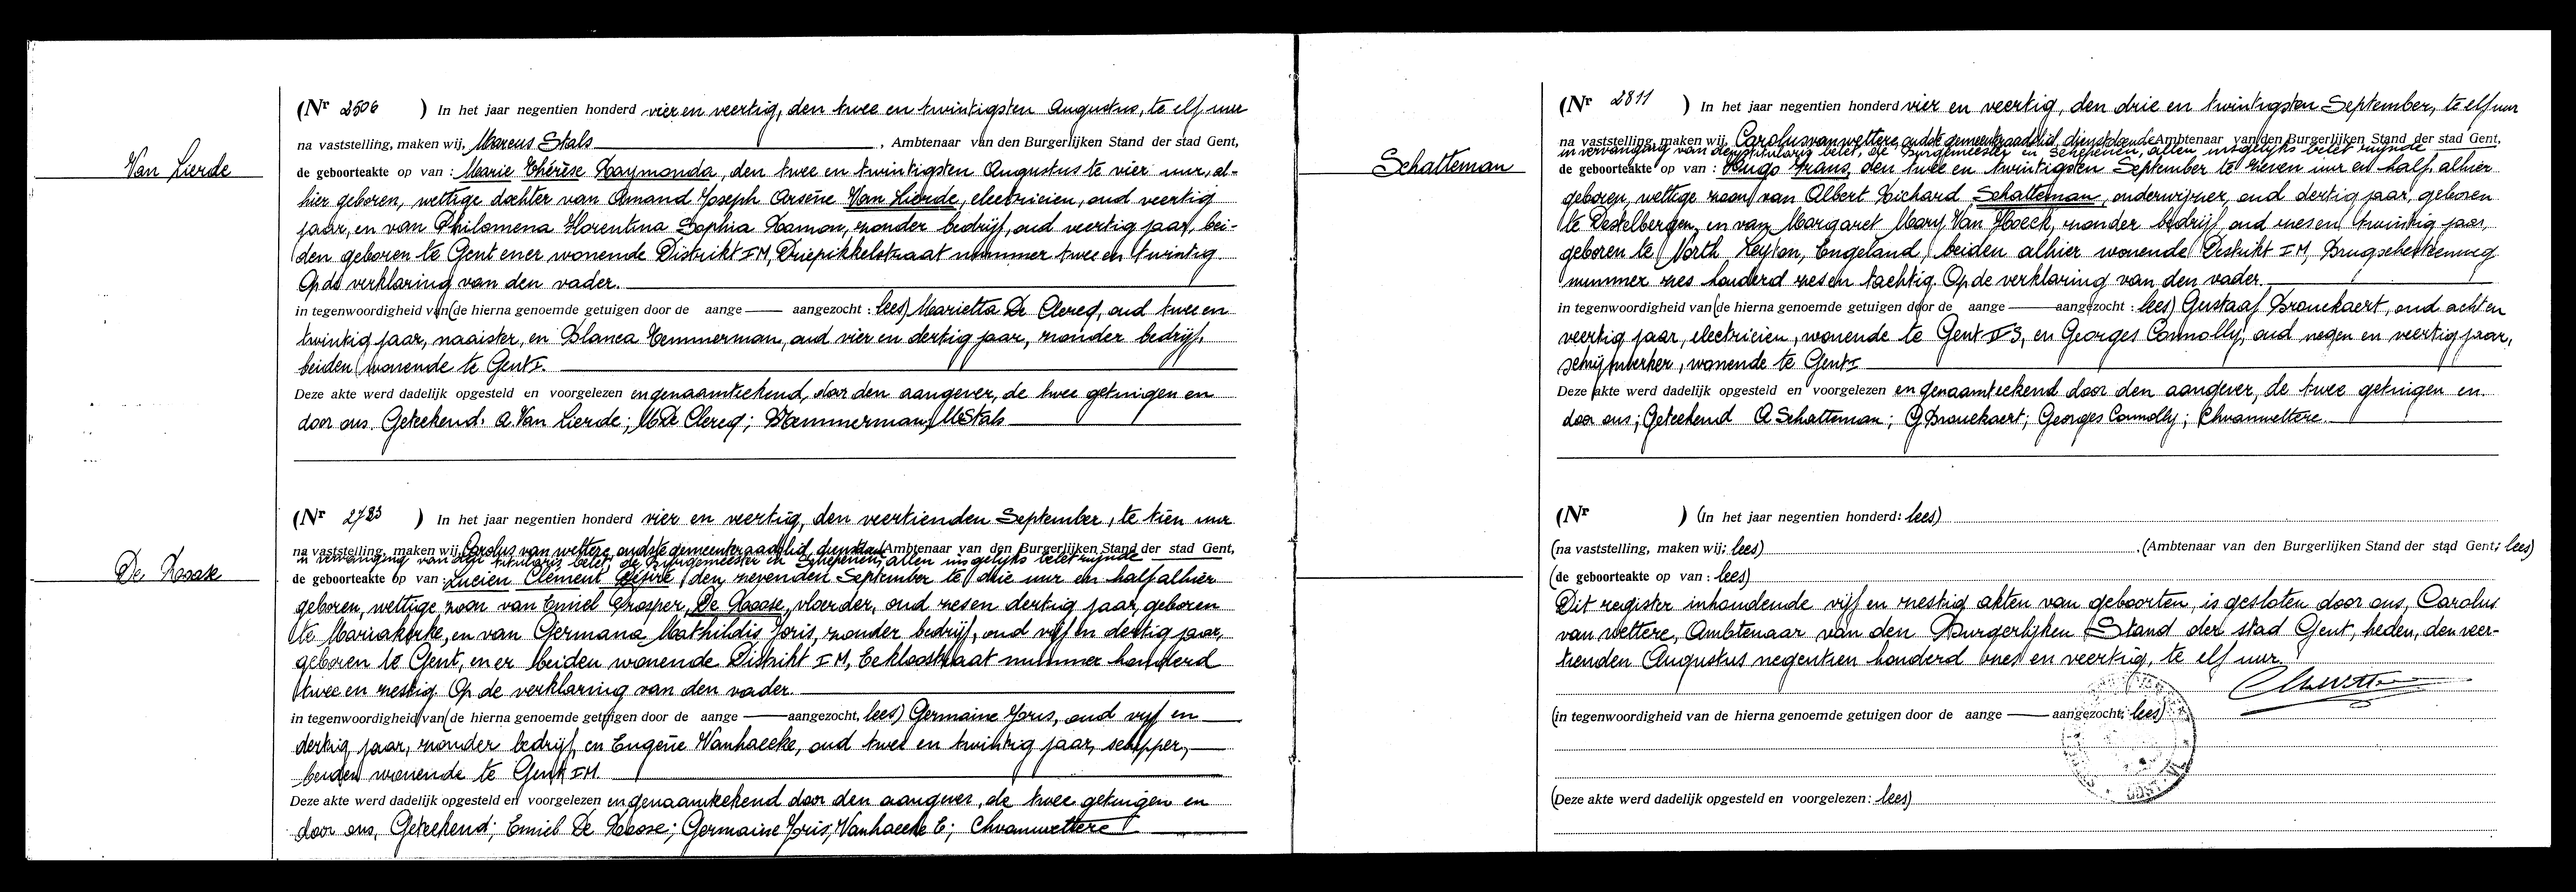 Van Lierde
(Nr 2506 ) In het jaar negentien honderd vier en veertig, den twee en twintigsten Augustus, te elf uur
na vaststelling, maken wij, Marcus Stals, Ambtenaar van den Burgerlijken Stand der stad Gent,
de geboorteakte op van : Marie Thérèse Raymonda, den twee en twintigsten Augustus te vier uur, al-
hier geboren, wettige dochter van Amand Joseph Arsène Van Lierde, electricien, oud veertig
jaar, en van Philomena Florentina Sophia Hamon, zonder bedrijf, oud veertig jaar, bei-
den geboren te Gent en er wonende Distrikt I M, Driepikkelstraat nummer twee en twintig
Op de verklaring van den vader.
in tegenwoordigheid van (de hierna genoemde getuigen door de aange — aangezocht : lees) Marietta De Clercq, oud twee en
twintig jaar, naaister, en Blanca Temmerman, oud vier en dertig jaar, zonder bedrijf,
beiden wonende te Gent I.
Deze akte werd dadelijk opgesteld en voorgelezen en genaamteekend, door den aangever, de twee getuigen en
door ons. Geteekend: A. Van Lierde; M De Clercq; B Temmerman; M Stals
De Roose
(Nr 2783 ) In het jaar negentien honderd vier en veertig, den veertienden September, te tien uur
na vaststelling, maken wij, Carolus van wettere, oudste gemeenteraadslid, dienstdoende Ambtenaar van den Burgerlijken Stand der stad Gent,
in vervanging van den titularis belet, de Burgemeester en Schepenen, allen insgelijks belet zijnde
de geboorteakte op van : Lucien Clément Désiré, den zevenden September te drie uur en half alhier
geboren, wettige zoon van Emiel Prosper De Roose, vloerder, oud zes en dertig jaar, geboren
te Mariakerke, en van Germana Mathildis Joris, zonder bedrijf, oud vijf en dertig jaar,
geboren te Gent, en er beiden wonende Distrikt I M, Eekloostraat nummer honderd
twee en zestig. Op de verklaring van den vader.
in tegenwoordigheid van (de hierna genoemde getuigen door de aange — aangezocht, lees) Germaine Joris, oud vijf en
dertig jaar, zonder bedrijf, en Eugène Vanhaecke, oud twee en twintig jaar, schipper,
beiden wonende te Gent I M
Deze akte werd dadelijk opgesteld en voorgelezen en genaamteekend door den aangever, de twee getuigen en
door ons, Geteekend; Emiel De Roose; Germaine Joris; Vanhaecke E; Chvanwettere
Schatteman
(Nr 2811 ) In het jaar negentien honderd vier en veertig, den drie en twintigsten September, te elf uur
na vaststelling, maken wij, Carolus van wettere, oudste gemeenteraadslid, dienstdoende Ambtenaar van den Burgerlijken Stand der stad Gent,
in vervanging van den titularis belet, de Burgemeester en Schepenen, allen insgelijks belet zijnde
de geboorteakte op van : Hugo Frans, den twee en twintigsten September te zeven uur en half, alhier
geboren, wettige zoon van Albert Richard Schatteman, onderwijzer, oud dertig jaar, geboren
te Destelbergen, en van Margaret Mary Van Hoeck, zonder bedrijf, oud zes en twintig jaar,
geboren te North Leyton, Engeland, beiden alhier wonende Distrikt I M, Brugschesteenweg
nummer zes honderd zes en tachtig. Op de verklaring van den vader.
in tegenwoordigheid van (de hierna genoemde getuigen door de aange — aangezocht : lees) Gustaaf Brouckaert, oud acht en
veertig jaar, electricien, wonende te Gent II 3, en Georges Connolly, oud negen en veertig jaar,
schrijnwerker, wonende te Gent I
Deze akte werd dadelijk opgesteld en voorgelezen en genaamteekend door den aangever, de twee getuigen en
door ons; Geteekend A Schatteman; G Brouckaert; Georges Connolly; Chvanwettere.
(Nr ) (In het jaar negentien honderd: lees)
(na vaststelling, maken wij; lees) (Ambtenaar van den Burgerlijken Stand der stad Gent; lees)
(de geboorteakte op van : lees)
Dit register inhoudende vijf en zestig akten van geboorten, is gesloten door ons, Carolus
van wettere, Ambtenaar van den Burgerlijken Stand der stad Gent, heden, den veer-
tienden Augustus negentien honderd zes en veertig, te elf uur.
(in tegenwoordigheid van de hierna genoemde getuigen door de aange — aangezocht; lees)
(Deze akte werd dadelijk opgesteld en voorgelezen : lees)